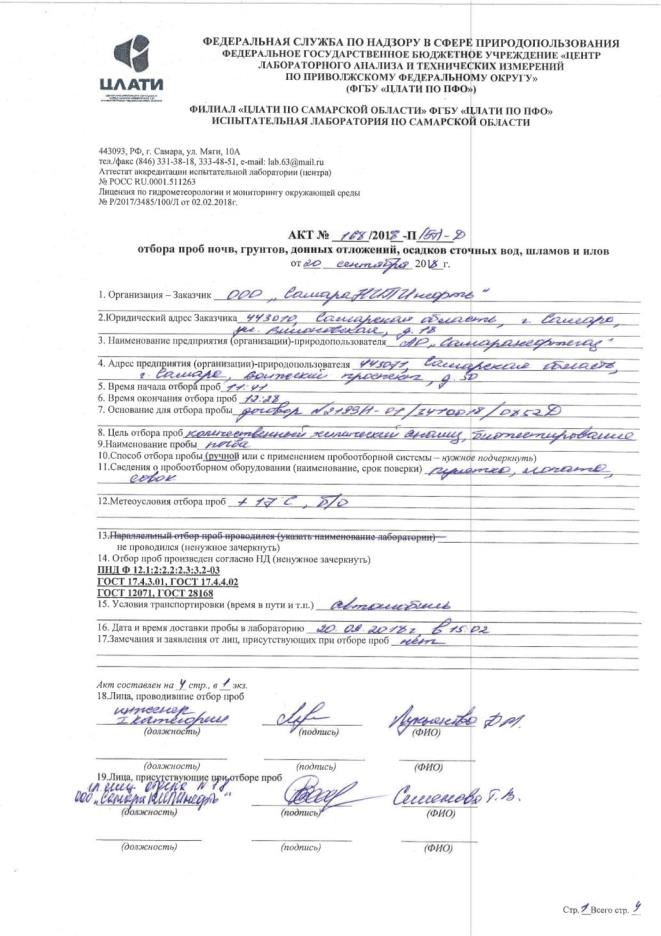 ФЕДЕРАЛЬНАЯ СЛУЖБА ПО НАДЗОРУ В СФЕРЕ ПРИРОДОПОЛЬЗОВАНИЯ
ФЕДЕРАЛЬНОЕ ГОСУДАРСТВЕННОЕ БЮДЖЕТНОЕ УЧРЕЖДЕНИЕ «ЦЕНТР
ЛАБОРАТОРНОГО АНАЛИЗА И ТЕХНИЧЕСКИХ ИЗМЕРЕНИЙ
ПО ПРИВОЛЖСКОМУ ФЕДЕРАЛЬНОМУ ОКРУГУ»
(ФГБУ «ЦЛАТИ ПО ПФО»)
ЦЛАТИ
ФИЛИАЛ «ЦЛАТИ ПО САМАРСКОЙ ОБЛАСТИ» ФГБУ «ЦЛАТИ ПО ПФО»
ИСПЫТАТЕЛЬНАЯ ЛАБОРАТОРИЯ ПО САМАРСКОЙ ОБЛАСТИ
443093, РФ, г. Самара, ул. Мяги, 10А
тел./факс (846) 331-38-18, 333-48-51, e-mail: lab.63@mail.ru
Аттестат аккредитации испытательной лаборатории (центра)
№ РОСС RU.0001.511263
Лицензия по гидрометеорологии и мониторингу окружающей среды
№ Р/2017/3485/100/Л от 02.02.2018г.
АКТ № 168/2018-П
отбора проб почв, грунтов, донных отложений, осадков сточных вод, шламов и илов
от 20 сентября 2018 г.
1. Организация – Заказчик ООО „СамараНИПИнефть"
2.Юридический адрес Заказчика 443010, Самарская область, г. Самара,
ул. Вилоновская, д. 18
3. Наименование предприятия (организации)-природопользователя АО „Самаранефтегаз"
4. Адрес предприятия (организации)-природопользователя 443071, Самарская область,
г. Самара, Волжский проспект, д. 50
5. Время начала отбора проб 11:41
6. Время окончания отбора проб 12:28
7. Основание для отбора пробы договор
8. Цель отбора проб количественный химический анализ, биотестирование
9.Наименование пробы почва
10.Способ отбора пробы (ручной или с применением пробоотборной системы – нужное подчеркнуть)
11.Сведения о пробоотборном оборудовании (наименование, срок поверки) рулетка, лопата,
совок
12.Метеоусловия отбора проб +17 С, б/о
13.Параллельный отбор проб проводился (указать наименование лаборатории)
не проводился (ненужное зачеркнуть)
14. Отбор проб произведен согласно НД (ненужное зачеркнуть)
ПНД Ф 12.1:2:2.2:2.3:3.2-03
ГОСТ 17.4.3.01, ГОСТ 17.4.4.02
ГОСТ 12071, ГОСТ 28168
15. Условия транспортировки (время в пути и т.п.) автомобиль
16. Дата и время доставки пробы в лабораторию 20.09.2018г, в 15.02
17.Замечания и заявления от лиц, присутствующих при отборе проб нет
Акт составлен на 4 стр., в 1 экз.
18.Лица, проводившие отбор проб
инженер
I категории Лукьянова Д.М.
(должность) (подпись) (ФИО)
(должность) (подпись) (ФИО)
19.Лица, присутствующие при отборе проб
отдела №
ООО „СамараНИПИнефть" Семенова Т. В.
(должность) (подпись) (ФИО)
(должность) (подпись) (ФИО)
Стр. 1 Всего стр. 4